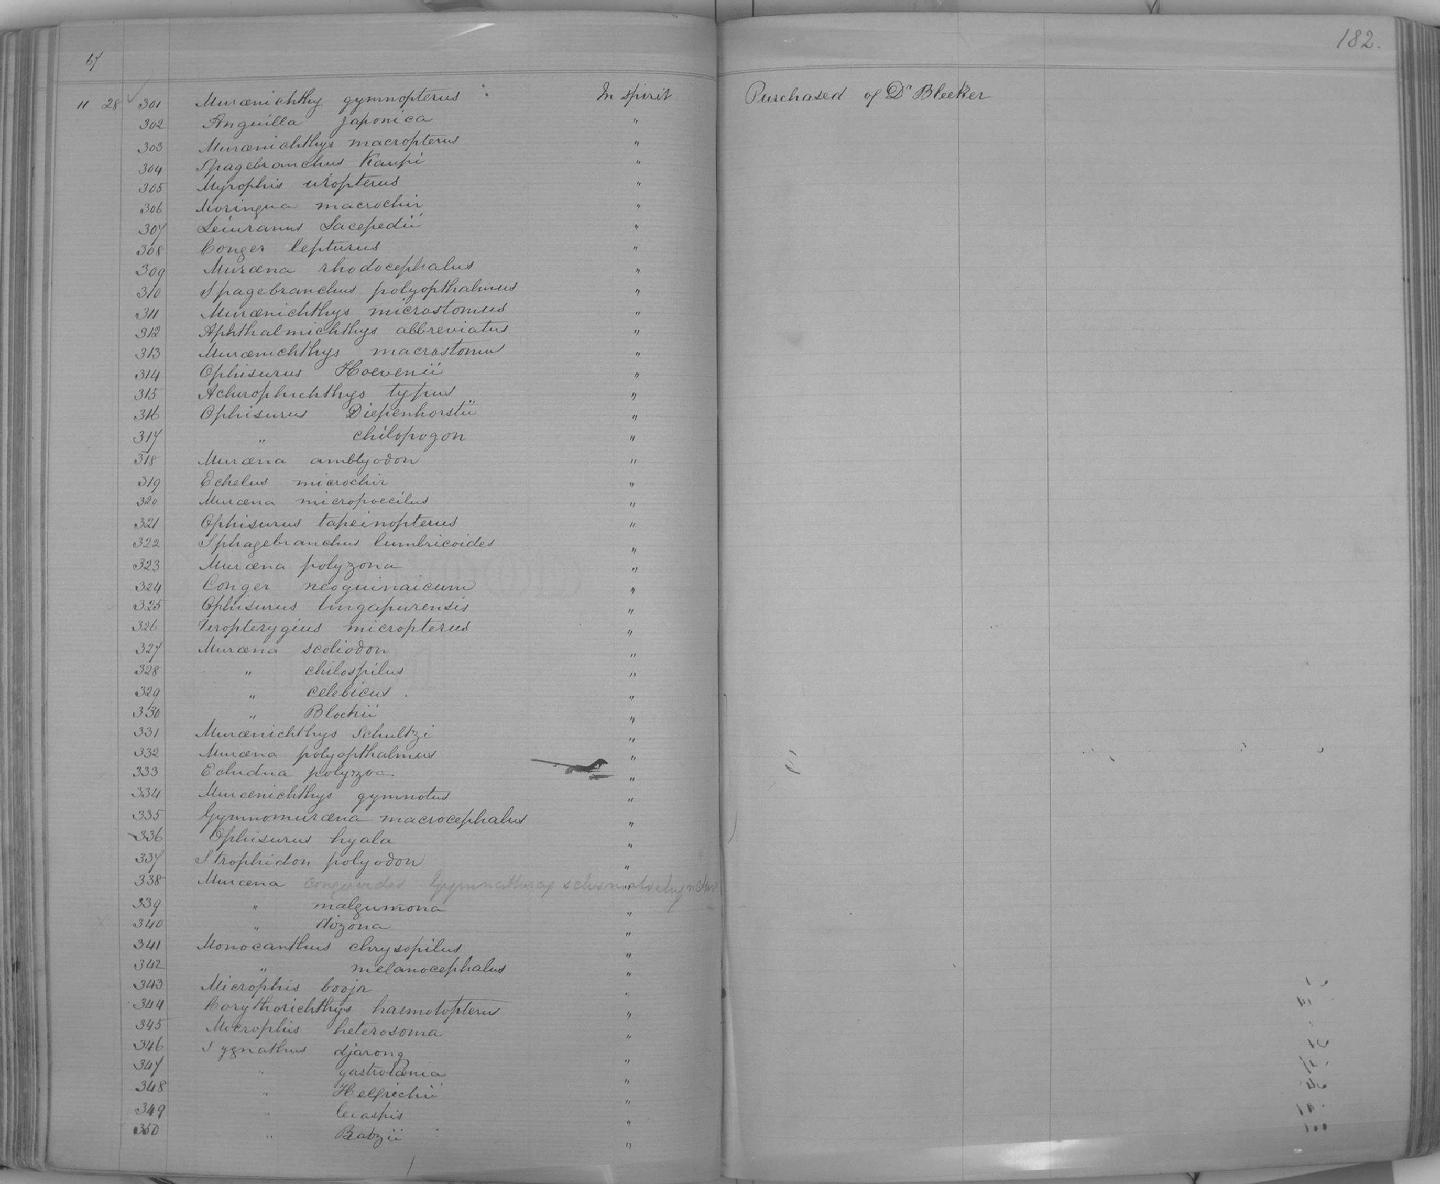 67
182.
11 28 301 Murænichthy gymnopterus In spirit Purchased of Dr Bleeker
302 Anguilla japonica "
303 Murænichthys macropterus "
304 Spagebranchus Kaupi "
305 Myrophis uropterus "
306 Moringua macrochir "
307 Leiuranus Lacepedii "
308 Conger lepturus "
309 Muræna rhodocephalus "
310 Spagebranchus polyopthalmus "
311 Murænichthys microstomus "
312 Aphthalmichthys abbreviatus "
313 Murænichthys macrostomus "
314 Ophisurus Hoevenii "
315 Achirophichthys typus "
316 Ophisurus Diepenhorstii "
317 " chilopogon "
318 Muræna amblyodon "
319 Echelus microchir "
320 Muræna micropoecilus "
321 Ophisurus tapeinopterus "
322 Sphagebranchus lumbricoides "
323 Muræna polyzona "
324 Conger neoguinaicum "
325 Ophisurus singapurensis "
326 Uropterygius micropterus "
327 Muræna scoliodon "
328 " chilospilus "
329 " celebicus . "
330 " Blochii "
331 Murænichthys Schultzi "
332 Muræna polyopthalmus "
333 Echidna polyzoa "
334 Murænichthys gymnotus "
335 Gymnomuræna macrocephalus "
336 Ophisurus hyala "
337 Strophidon polyodon "
338 Muræna "
339 " "
340 " dizona "
341 Monocanthus chrysopilus "
342 " melanocephalus "
343 Microphis boaja "
344 Corythroichthys haemotopterus "
345 Microphis heterosoma "
346 Sygnathus djarong "
347 " gastrotænia "
348 " Helfrichii "
349 " "
350 " "